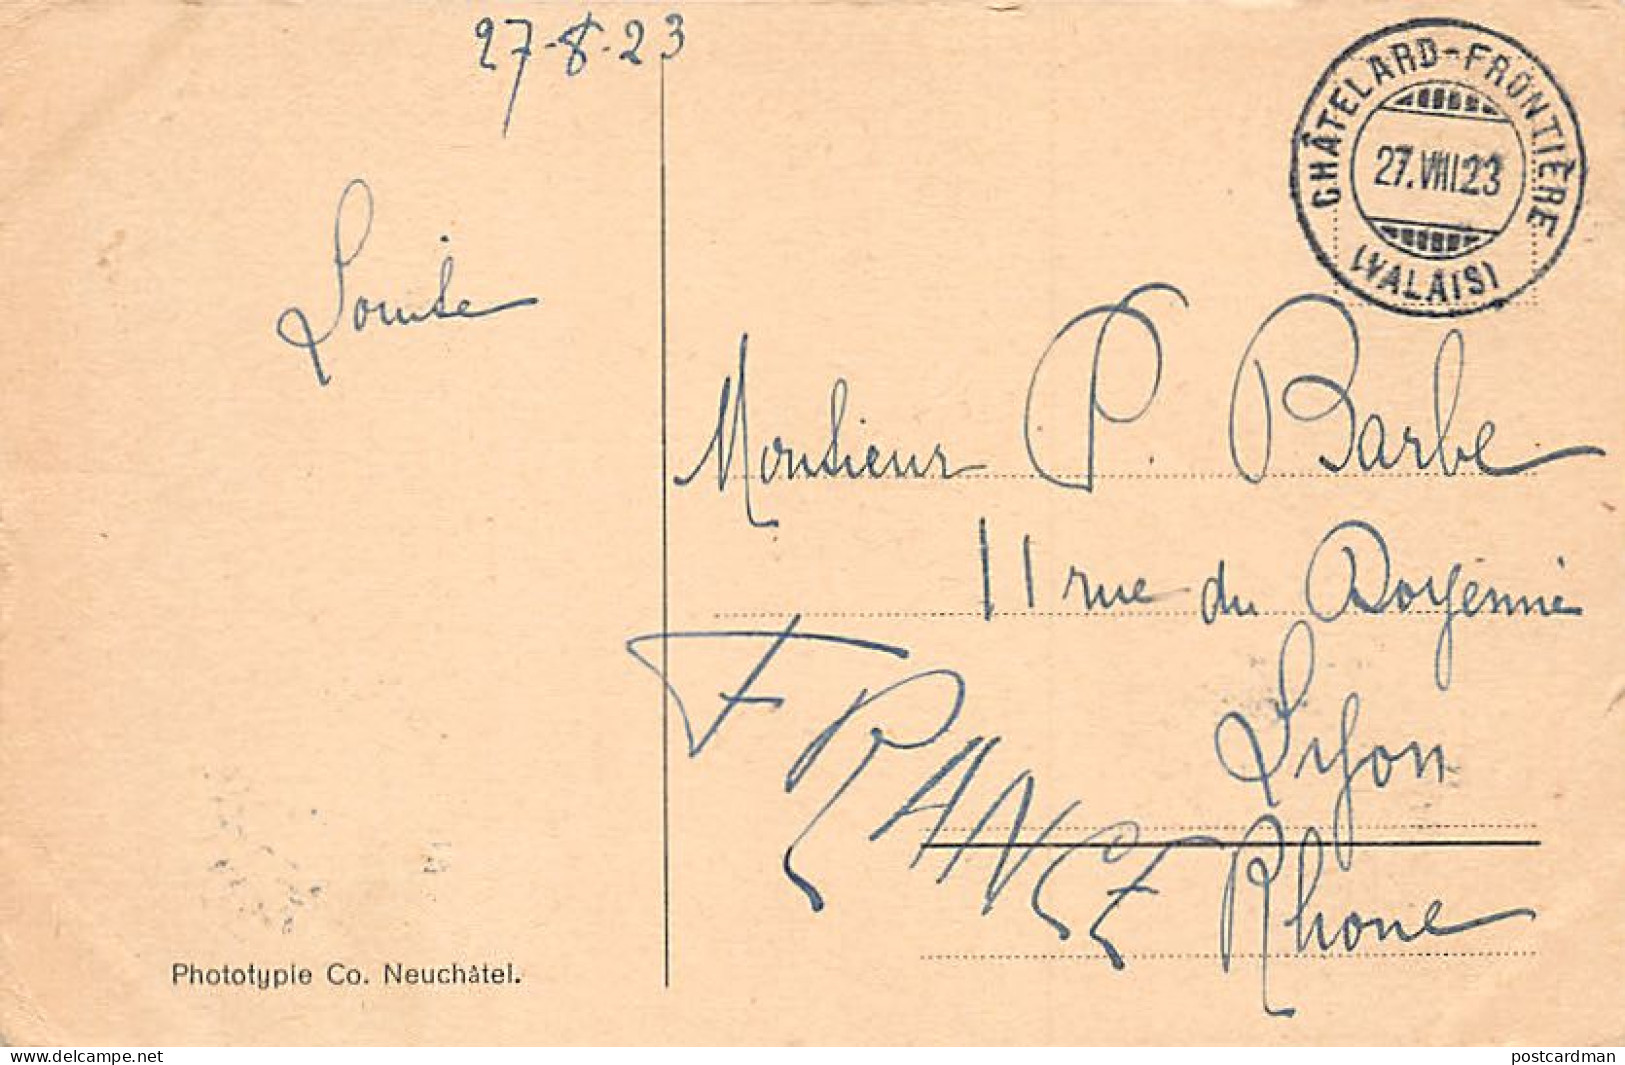 27-8-23
CHÂTELARD-FRONTIÈRE
27.VIII.23
(VALAIS)
Louise
Monsieur P. Barbe
11 rue du Doyenné
Lyon
Rhone
FRANCE
Phototypie Co. Neuchâtel.
www.delcampe.net
postcardman